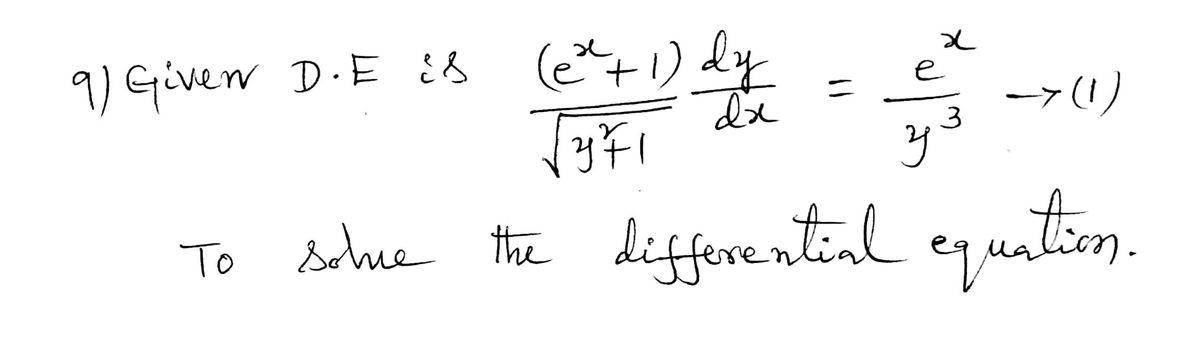 9) Given D.E is (e^x+1)/√(y²+1) dy/dx = e^x/y³ → (1)
To solve the differential equation.